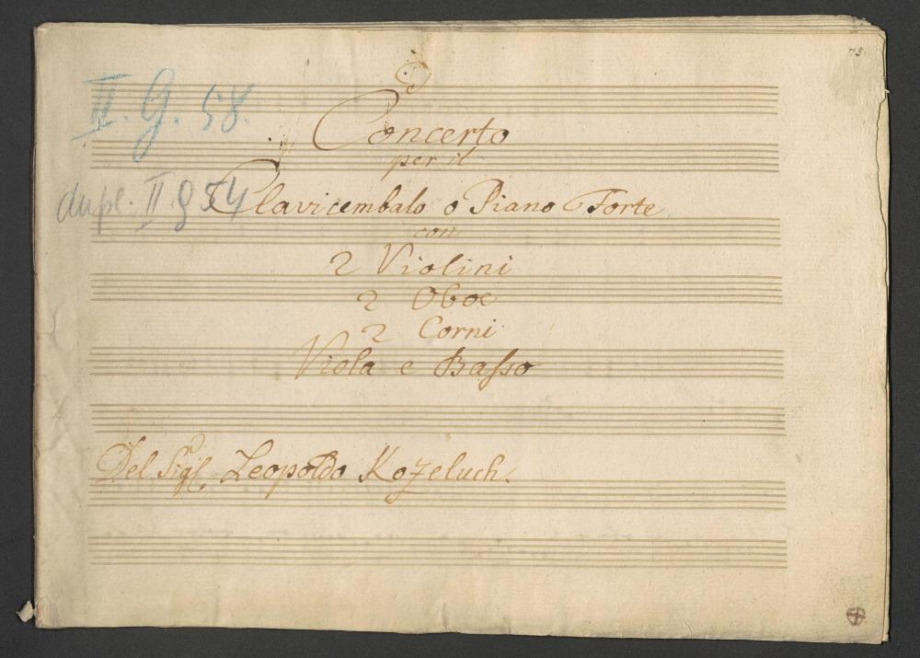 75
II. G. 58.
Concerto
per il
dupl. II g 54
Clavicembalo o Piano Forte
con
2 Violini
2 Oboe
2 Corni
Viola e Basso
Del Sigl Leopoldo Kozeluch.